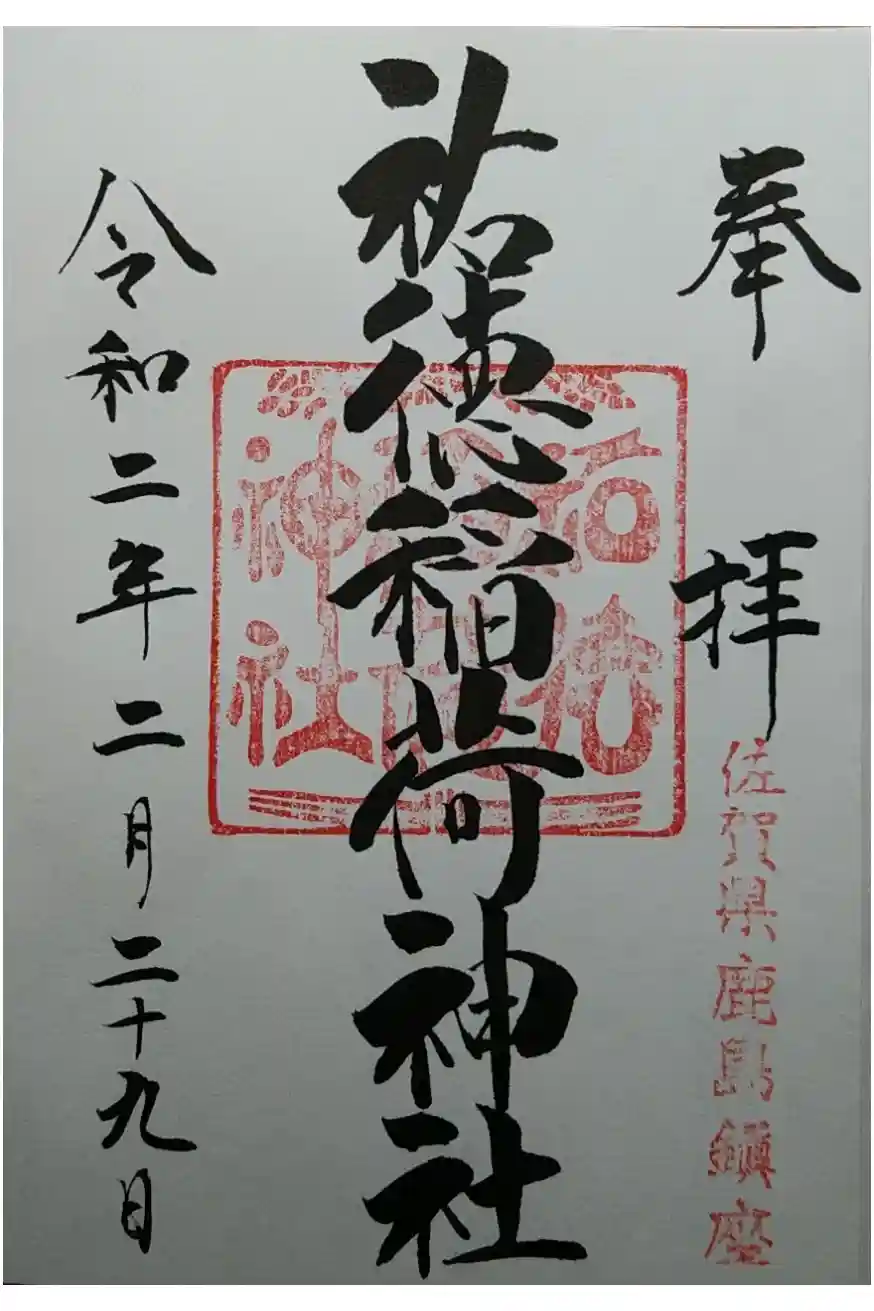 奉拝
佐賀県鹿島鎮座
祐徳稲荷神社
祐徳
稲荷
神社
令和二年二月二十九日